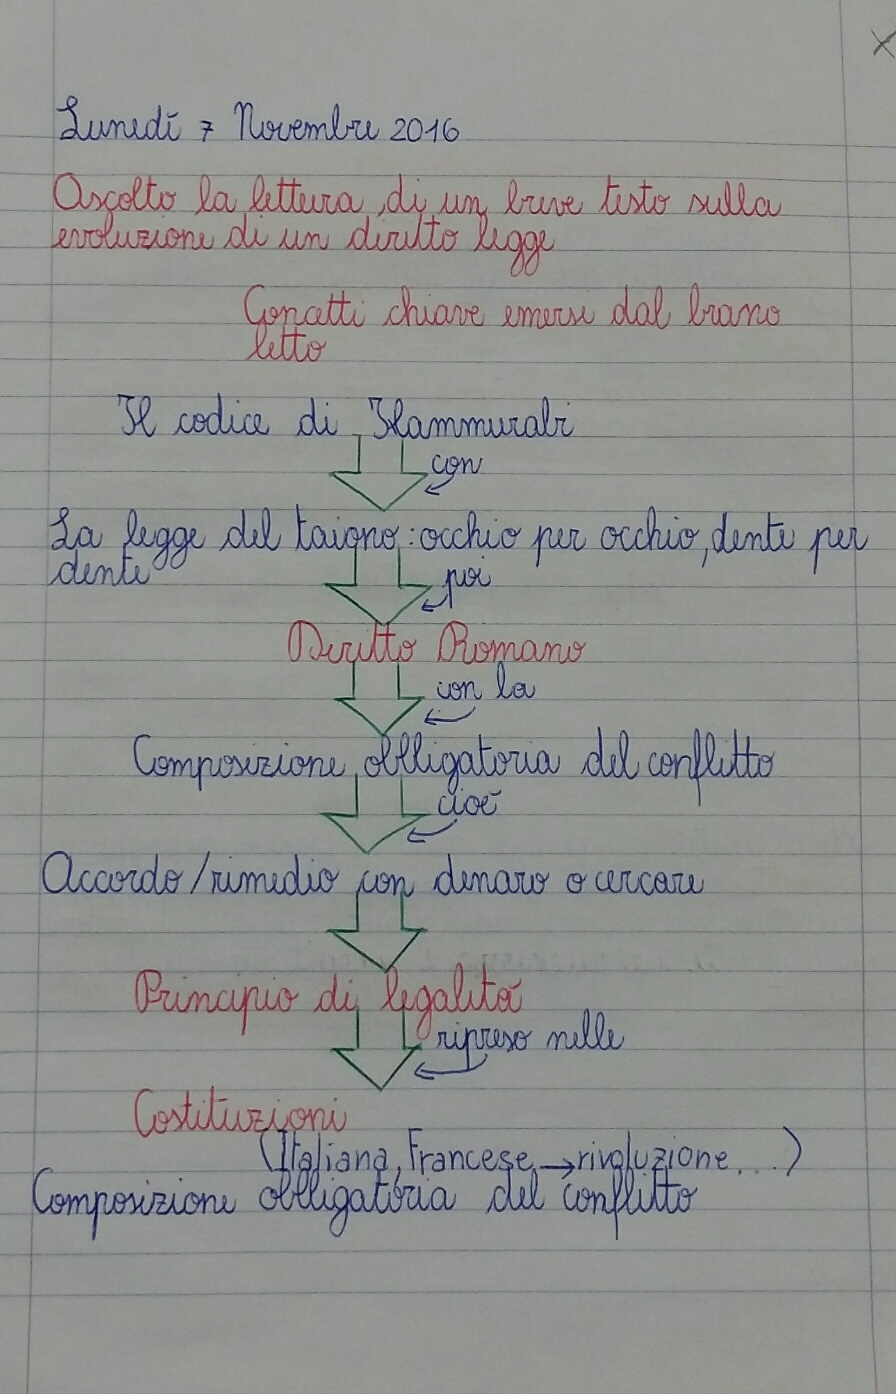 Lunedí 7 Novembre 2016
Ascolto la lettura di un breve testo sulla
evoluzione di un diritto legge
Concetti chiave emersi dal brano
letto
Il codice di Hammurabi
con
La legge del taione: occhio per occhio, dente per
dente
poi
Diritto Romano
con la
Composizione obbligatoria del conflitto
cioé
Accordo/rimedio con denaro o cercare
Principio di legalitá
ripreso nelle
Costituzioni
(Italiana, Francese → rivoluzione...)
Composizione obbligatoria del conflitto